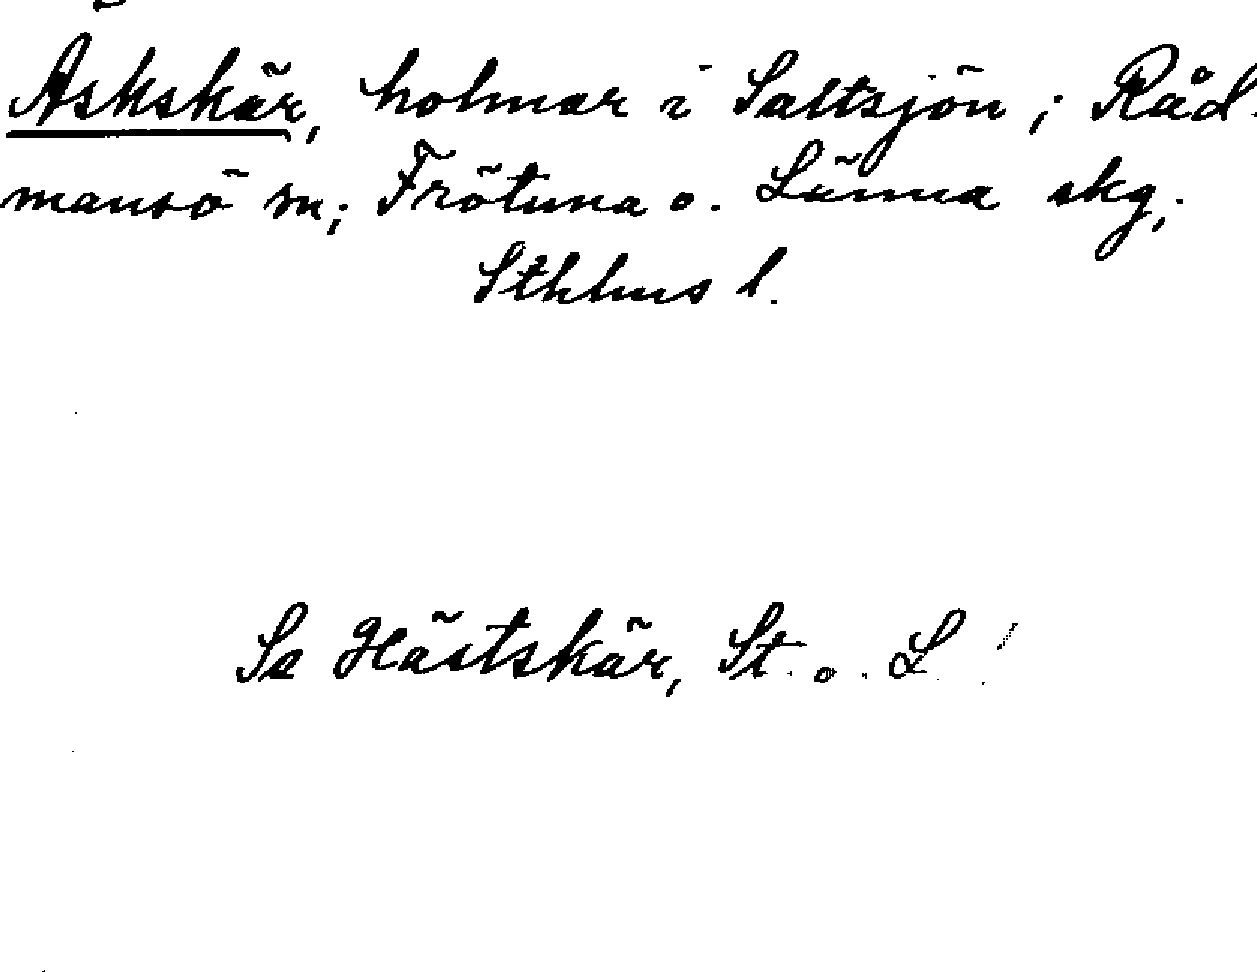 Äskskär, holmar i Saltsjön; Råd-
mansö sn; Frötuna o. Länna skg;
Sthlms l.
Se Hästskär, St. o. L.!